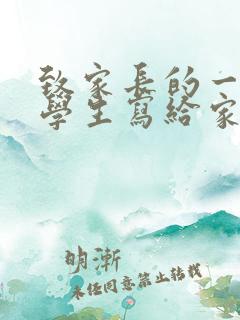 致家長的一
學生寫給家
明漸
未經同意禁止轉載